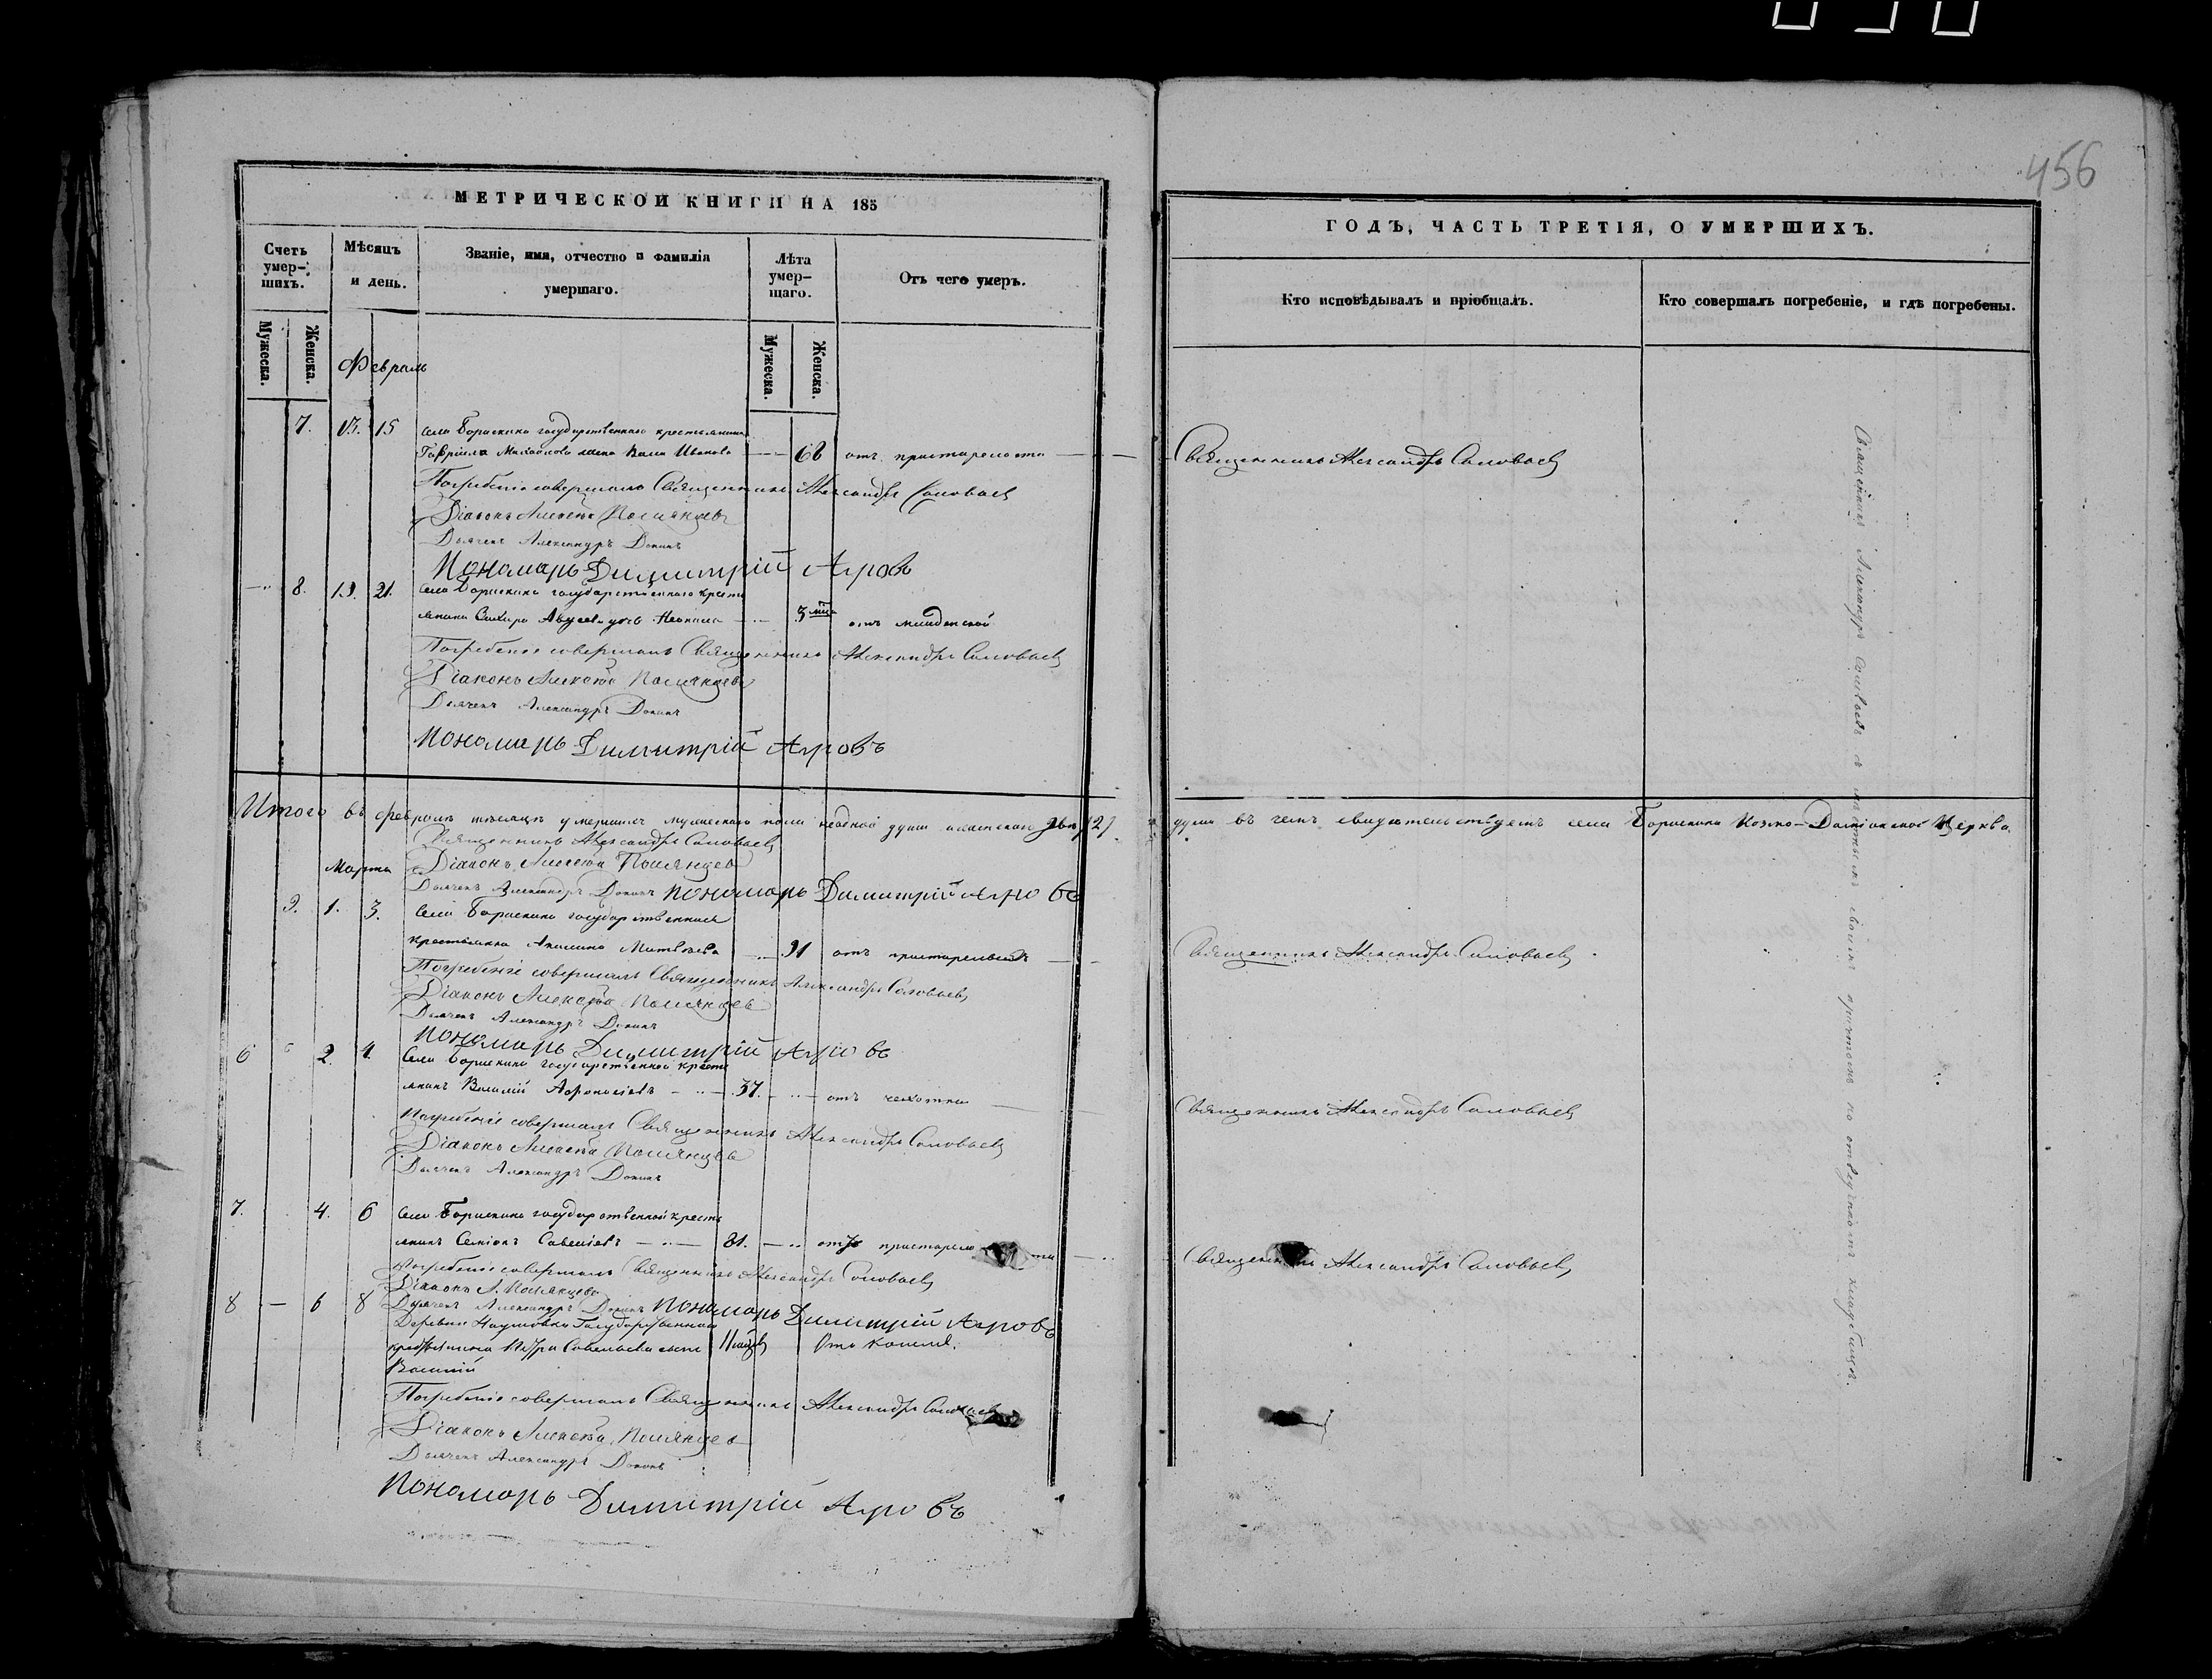 456
МЕТРИЧЕСКОЙ КНИГИ НА 185
ГОДЪ, ЧАСТЬ ТРЕТІЯ, О УМЕРШИХЪ.
Счетъ умер-шихъ.
Мѣсяцъ и день.
Званіе, имя, отчество и фамилія умершаго.
Лѣта умер-шаго.
Отъ чего умеръ.
Кто исповѣдывалъ и пріобщалъ.
Кто совершалъ погребеніе, и гдѣ погребены.
Мужеска.
Женска.
Мужеска.
Женска.
Февраль
7. 13. 15 села Борискина государственнаго крестьянина
Гавріила Михайлова жена Иванова 68 отъ престарелости Священникъ Александръ Соловьевъ
Погребеніе совершалъ Священникъ Александръ Соловьевъ
Діаконъ Алексѣй Полянцевъ
Дьячекъ Александръ Донинъ
Пономарь Димитрій Агровъ
8. 19. 21. села Борискина государственнаго кресть
янина дочь 3 мца отъ младенской
Погребеніе совершалъ Священникъ Александръ Соловьевъ
Діаконъ Алексѣй Полянцевъ
Дьячекъ Александръ Донинъ
Пономарь Димитрій Агровъ
Итого въ февралѣ мѣсяцѣ умершихъ мужескаго пола неодной души а женскаго двѣ /2/
души въ чемъ свидѣтельствуетъ села Борискина Козмо-Даміанской Церкви
Священникъ Александръ Соловьевъ
Діаконъ Алексѣй Полянцевъ
Марта
Дьячекъ Александръ Донинъ Пономарь Димитрій Агровъ
9. 1. 3. села Борискина государственная
крестьянка Акилина Матвѣева 91 отъ престарелости Священникъ Александръ Соловьевъ
Погребеніе совершалъ Священникъ Александръ Соловьевъ
Діаконъ Алексѣй Полянцевъ
Дьячекъ Александръ Донинъ
Пономарь Димитрій Агровъ
6 2. 4. села Борискина государственной кресть
янинъ Василій Афонасіевъ 37. отъ чехотки Священникъ Александръ Соловьевъ
Погребеніе совершалъ Священникъ Александръ Соловьевъ
Діаконъ Алексѣй Полянцевъ
Дьячекъ Александръ Донинъ
7. 4. 6 села Борискина государственной кресть
янинъ Семіонъ Савеліевъ 81. отъ престарело сти Священникъ Александръ Соловьевъ
Погребеніе совершалъ Священникъ Александръ Соловьевъ
Діаконъ А. Полянцевъ
Дьячекъ Александръ Донинъ Пономарь Димитрій Агровъ
8 6 8 Деревни Наумовки Государственнаго
крестьянина Петра Савельева сынъ отъ кашля.
Василій
Погребеніе совершалъ Священникъ Александръ Соловьевъ
Діаконъ Алексѣй Полянцевъ
Дьячекъ Александръ Донинъ
Пономарь Димитрій Агровъ
Священникъ Александръ Соловьевъ с мѣстнымъ своимъ причтомъ на отведенномъ кладбищѣ.